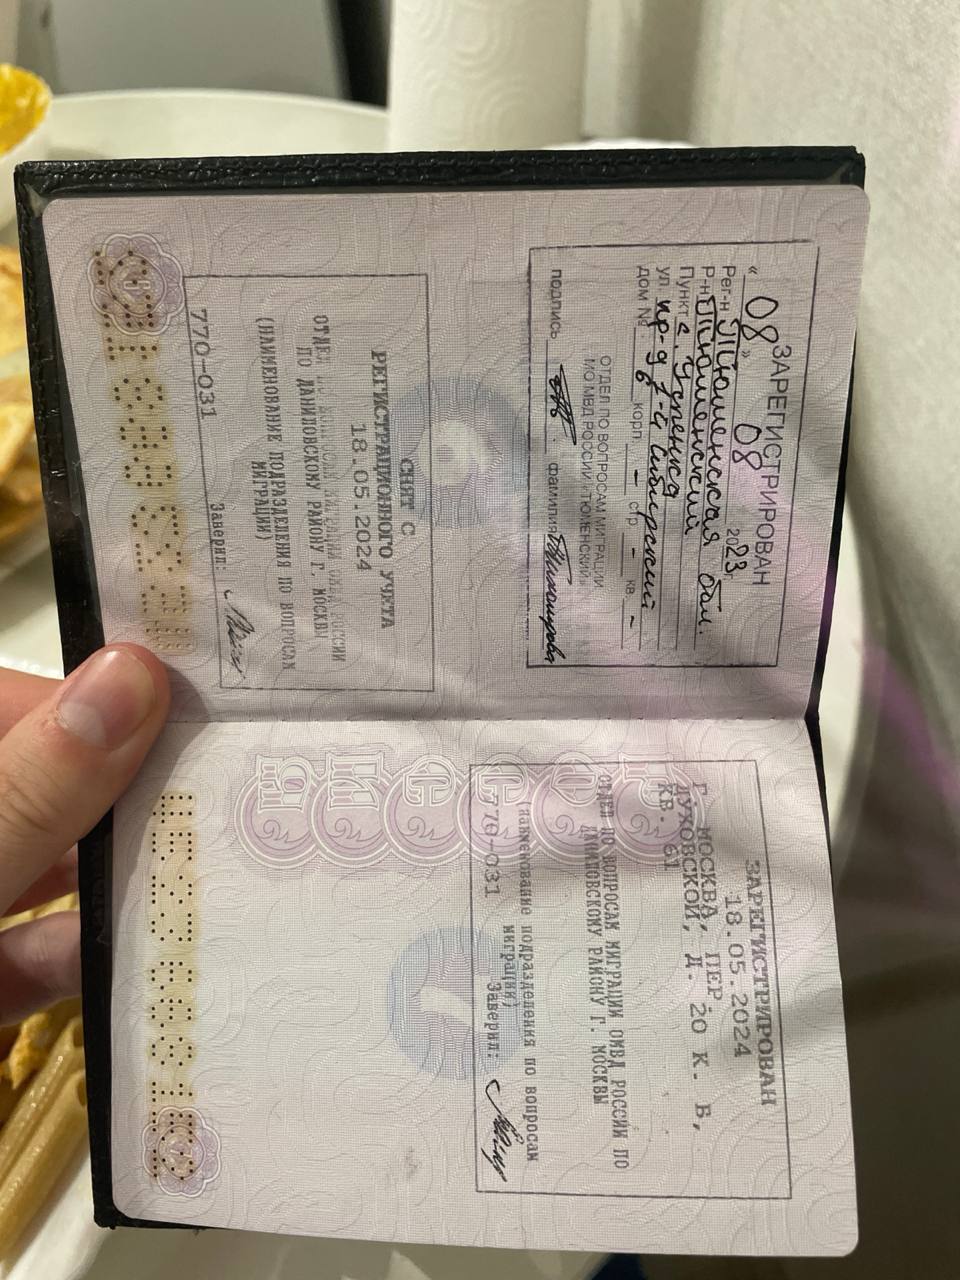 ЗАРЕГИСТРИРОВАН
"08" 08 2023г.
Рег-н Тюменская обл.
Р-н Тюменский
Пункт с. Успенка
ул. пр-д 1-й Сибирский
дом № 6 корп. - стр - кв -
ОТДЕЛ ПО ВОПРОСАМ МИГРАЦИИ
МО МВД РОССИИ "ТЮМЕНСКИЙ"
подпись фамилия
СНЯТ С
РЕГИСТРАЦИОННОГО УЧЕТА
18.05.2024
ОТДЕЛ ПО ВОПРОСАМ МИГРАЦИИ ОМВД РОССИИ
ПО ДАНИЛОВСКОМУ РАЙОНУ Г. МОСКВЫ
(НАИМЕНОВАНИЕ ПОДРАЗДЕЛЕНИЯ ПО ВОПРОСАМ
МИГРАЦИИ)
770-031 Заверил:
ЗАРЕГИСТРИРОВАН
18.05.2024
Г. МОСКВА, ПЕР.
ДУХОВСКОЙ, Д. 20 К. В,
КВ. 61
ОТДЕЛ ПО ВОПРОСАМ МИГРАЦИИ ОМВД РОССИИ ПО
ДАНИЛОВСКОМУ РАЙОНУ Г. МОСКВЫ
(наименование подразделения по вопросам
миграции)
770-031 Заверил:
РОССИЯ